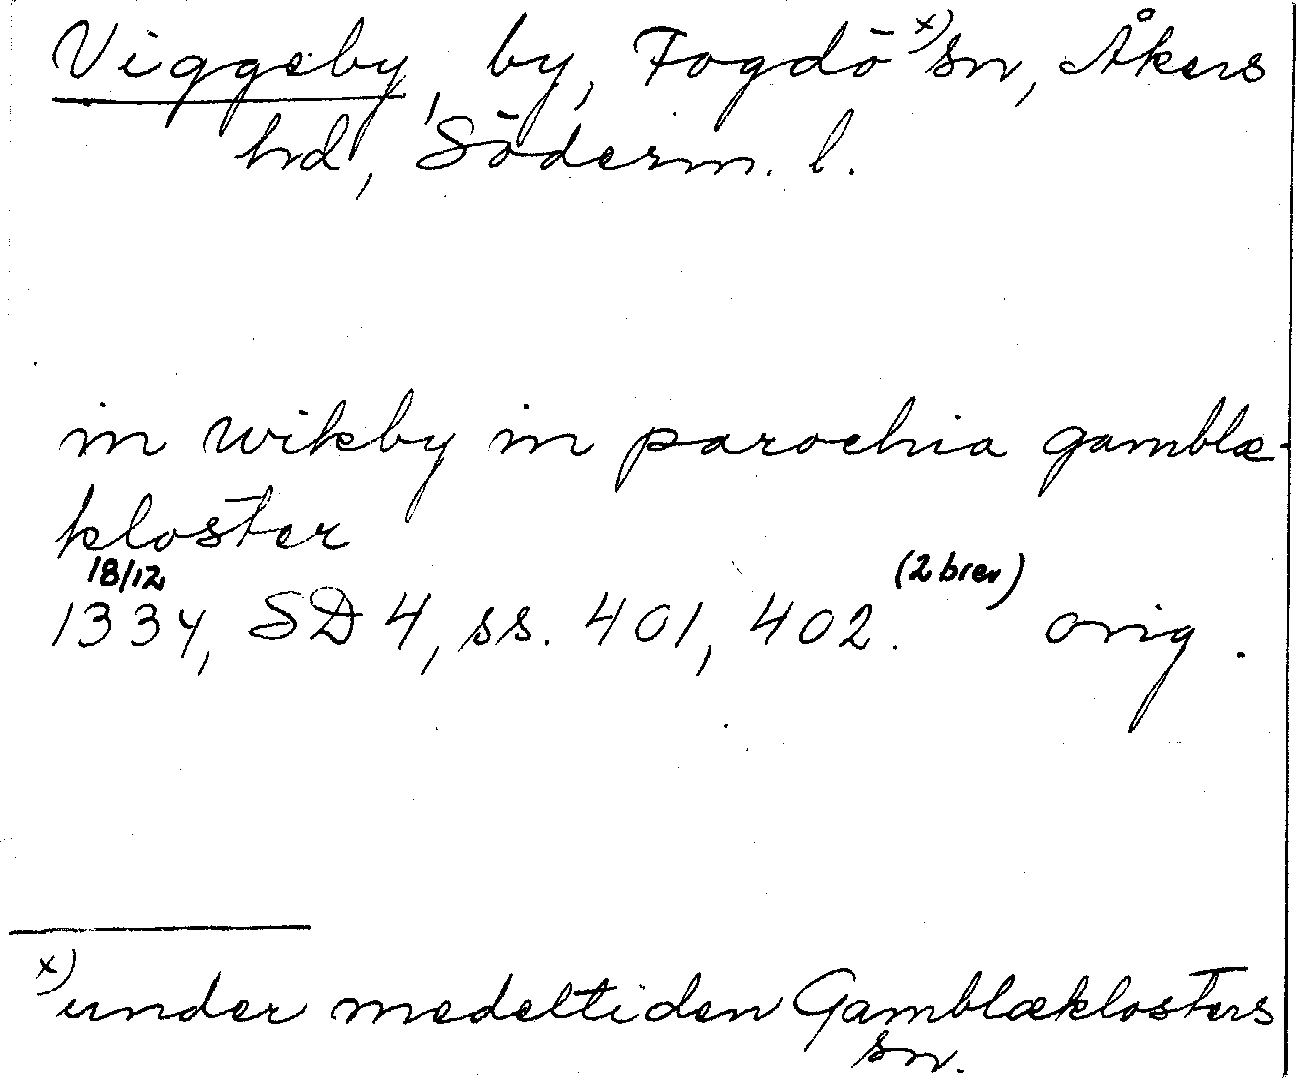 Viggeby by, Fogdö x) sn, Åkers
hd, Söderm. l.
in wikby in parochia gamblæ-
kloster
18/12 (2 brev)
1334, SD 4, ss. 401, 402. orig.
x) under medeltiden Gamblæklosters
sn.